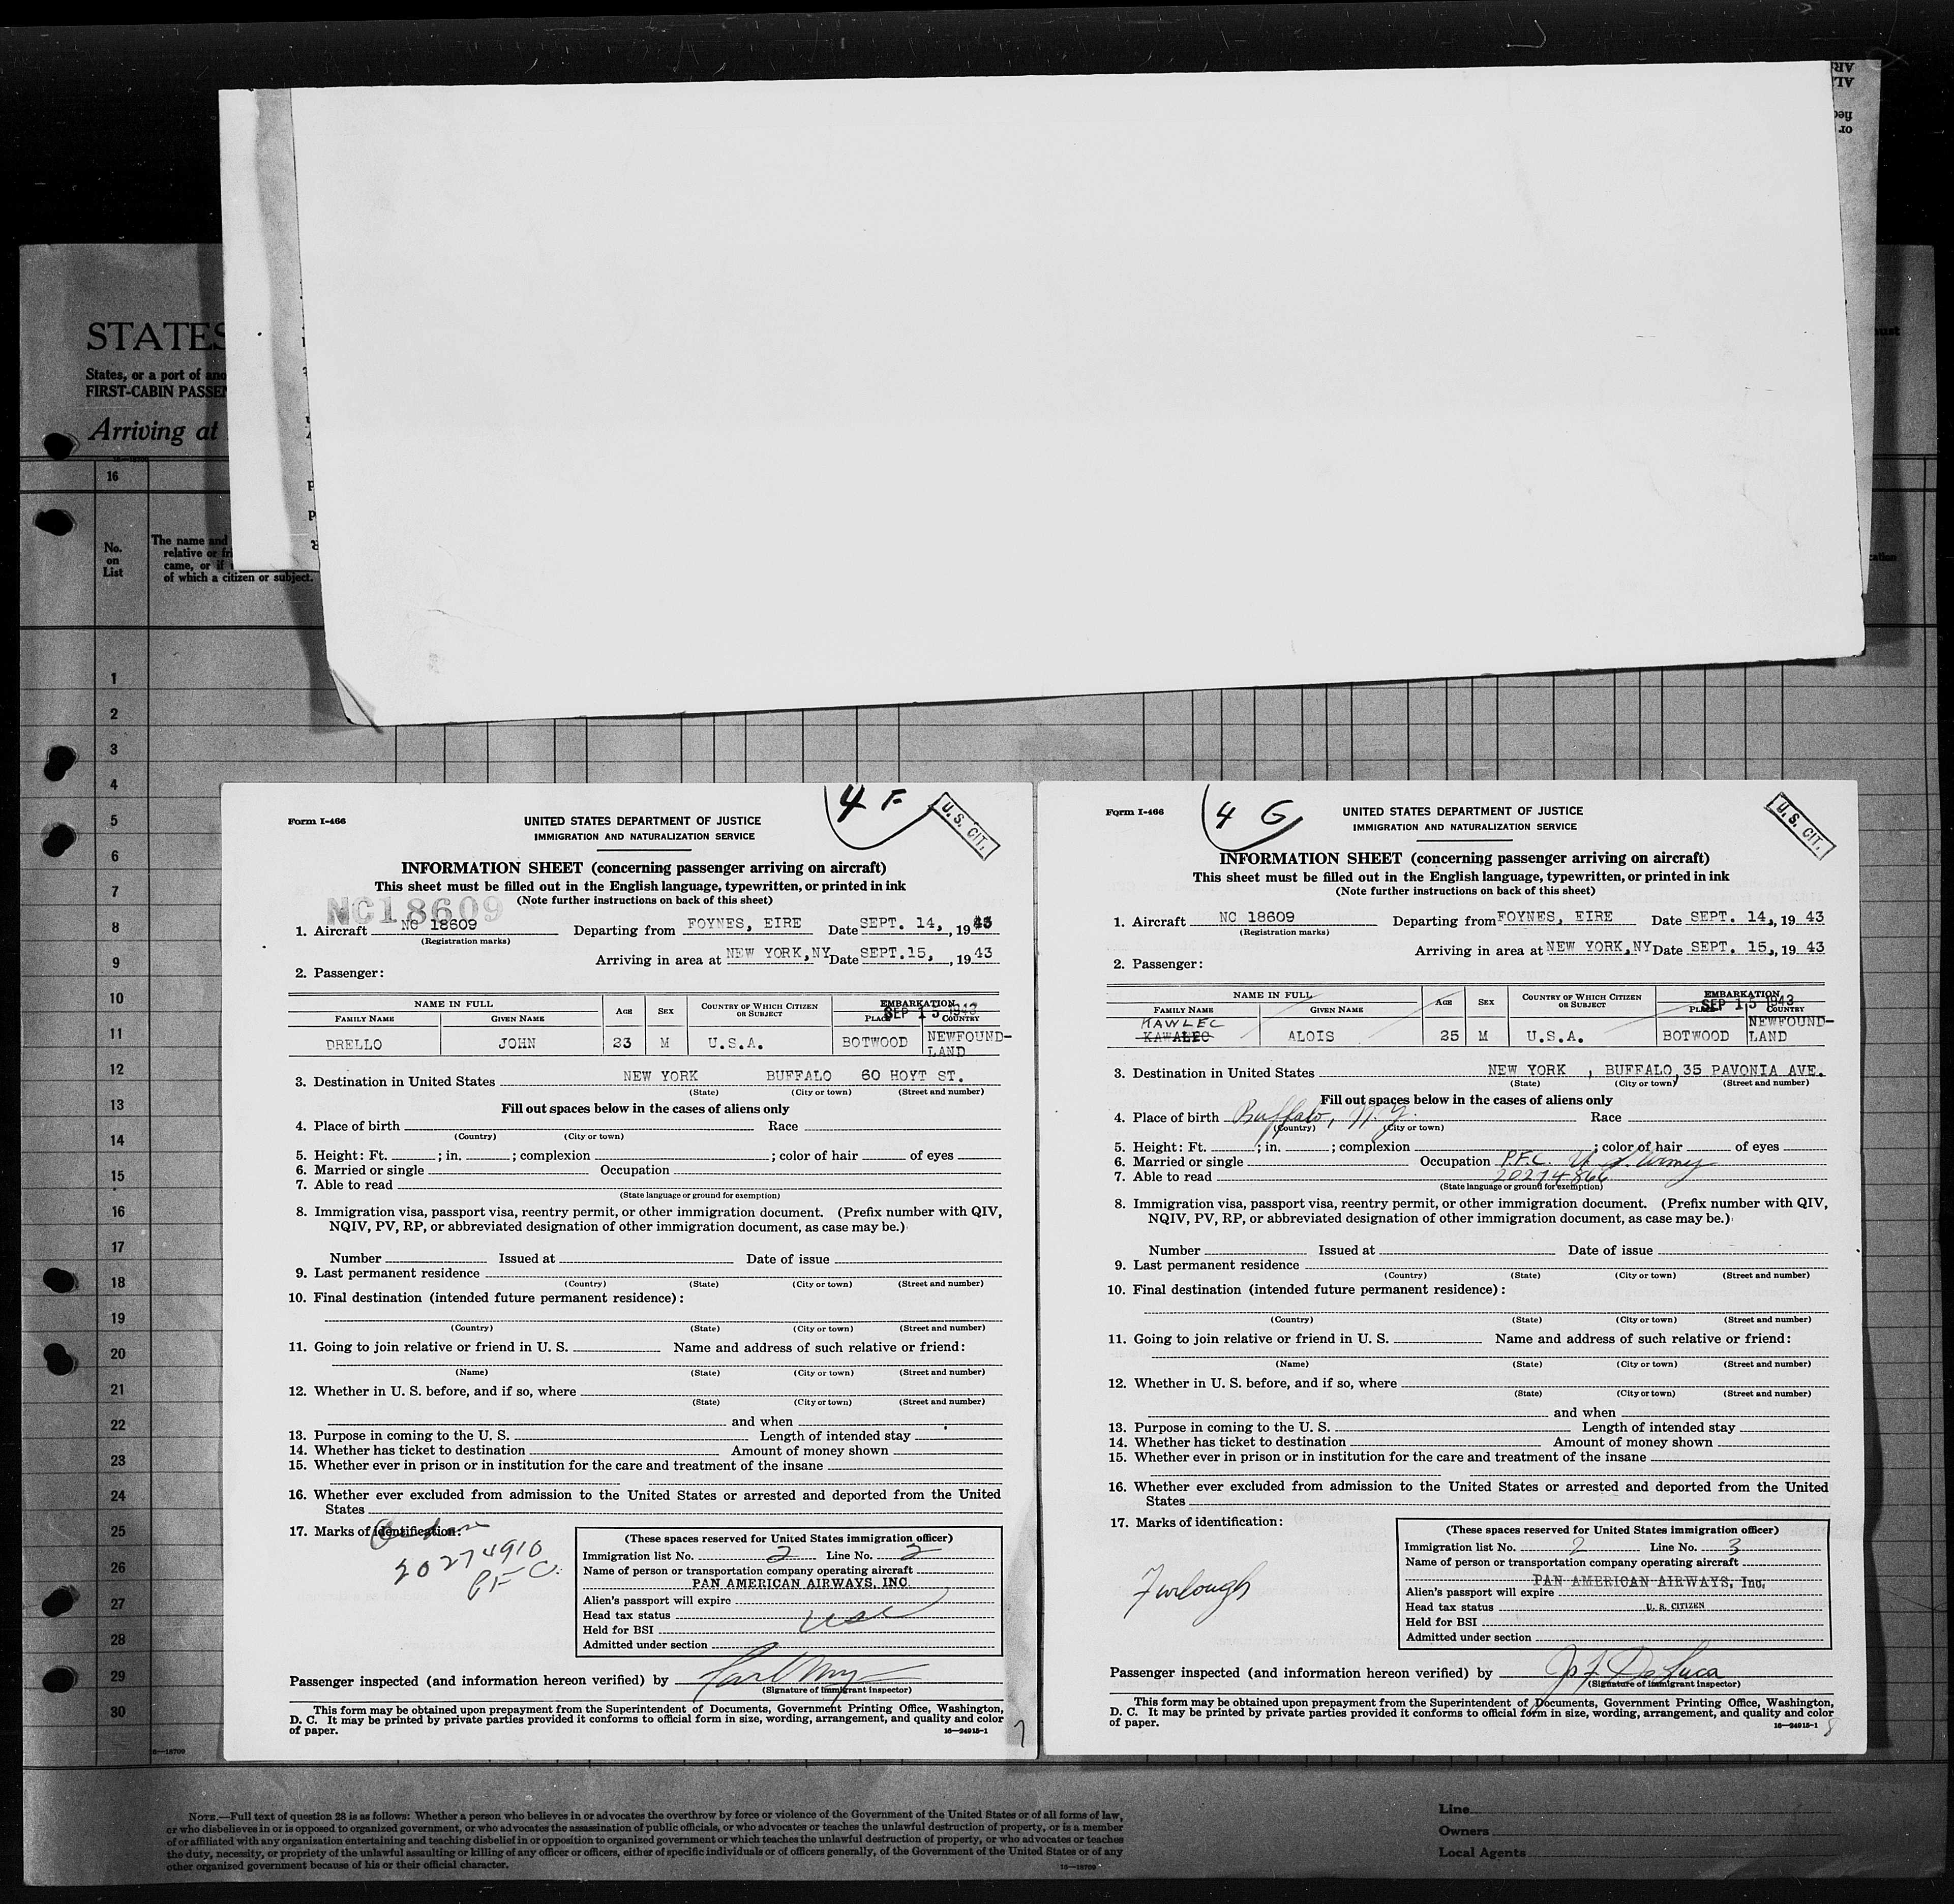 STATES
States, or a port of ano
FIRST-CABIN PASSE
Arriving at
16
No.
on
List
The name and
relative or fri
came, or if
of which a citizen or subject.
1
2
3
4
5
6
7
8
9
10
11
12
13
14
15
16
17
18
19
20
21
22
23
24
25
26
27
28
29
30
Form I-466
4 F
U. S. CIT.
UNITED STATES DEPARTMENT OF JUSTICE
IMMIGRATION AND NATURALIZATION SERVICE
INFORMATION SHEET (concerning passenger arriving on aircraft)
This sheet must be filled out in the English language, typewritten, or printed in ink
(Note further instructions on back of this sheet)
NC18609
1. Aircraft NC 18609 Departing from FOYNES, EIRE Date SEPT. 14, , 1943
(Registration marks)
Arriving in area at NEW YORK,NY Date SEPT.15, , 1943
2. Passenger:
NAME IN FULL AGE SEX COUNTRY OF WHICH CITIZEN OR SUBJECT EMBARKATION
SEP 15 1943
FAMILY NAME GIVEN NAME PLACE COUNTRY
DRELLO JOHN 23 M U.S.A. BOTWOOD NEWFOUND-
LAND
3. Destination in United States NEW YORK BUFFALO 60 HOYT ST.
(State) (City or town) (Street and number)
Fill out spaces below in the cases of aliens only
4. Place of birth Race
(Country) (City or town)
5. Height: Ft. ; in. ; complexion ; color of hair of eyes
6. Married or single Occupation
7. Able to read
(State language or ground for exemption)
8. Immigration visa, passport visa, reentry permit, or other immigration document. (Prefix number with QIV,
NQIV, PV, RP, or abbreviated designation of other immigration document, as case may be.)
Number Issued at Date of issue
9. Last permanent residence
(Country) (State) (City or town) (Street and number)
10. Final destination (intended future permanent residence):
(Country) (State) (City or town) (Street and number)
11. Going to join relative or friend in U. S. Name and address of such relative or friend:
(Name) (State) (City or town) (Street and number)
12. Whether in U. S. before, and if so, where
(State) (City or town) (Street and number)
and when
13. Purpose in coming to the U. S. Length of intended stay
14. Whether has ticket to destination Amount of money shown
15. Whether ever in prison or in institution for the care and treatment of the insane
16. Whether ever excluded from admission to the United States or arrested and deported from the United
States
17. Marks of identification:
20274910
PFC.
(These spaces reserved for United States immigration officer)
Immigration list No. 2 Line No. 2
Name of person or transportation company operating aircraft
PAN AMERICAN AIRWAYS, INC
Alien's passport will expire
Head tax status usc
Held for BSI
Admitted under section
Passenger inspected (and information hereon verified) by
(Signature of immigrant inspector)
This form may be obtained upon prepayment from the Superintendent of Documents, Government Printing Office, Washington,
D. C. It may be printed by private parties provided it conforms to official form in size, wording, arrangement, and quality and color
of paper. 16—24915-1
7
Form I-466
4 G
U. S. CIT.
UNITED STATES DEPARTMENT OF JUSTICE
IMMIGRATION AND NATURALIZATION SERVICE
INFORMATION SHEET (concerning passenger arriving on aircraft)
This sheet must be filled out in the English language, typewritten, or printed in ink
(Note further instructions on back of this sheet)
1. Aircraft NC 18609 Departing from FOYNES, EIRE Date SEPT. 14,, 19 43
(Registration marks)
Arriving in area at NEW YORK,NY Date SEPT. 15,, 19 43
2. Passenger:
NAME IN FULL AGE SEX COUNTRY OF WHICH CITIZEN OR SUBJECT EMBARKATION
SEP 15 1943
FAMILY NAME GIVEN NAME PLACE COUNTRY
KAWLEC
KAWALEC ALOIS 25 M U.S.A. BOTWOOD NEWFOUND-
LAND
3. Destination in United States NEW YORK , BUFFALO, 35 PAVONIA AVE.
(State) (City or town) (Street and number)
Fill out spaces below in the cases of aliens only
4. Place of birth Buffalo, N.Y. Race
(Country) (City or town)
5. Height: Ft. ; in. ; complexion ; color of hair of eyes
6. Married or single Occupation P.F.C. U.S. Army
7. Able to read 20274866
(State language or ground for exemption)
8. Immigration visa, passport visa, reentry permit, or other immigration document. (Prefix number with QIV,
NQIV, PV, RP, or abbreviated designation of other immigration document, as case may be.)
Number Issued at Date of issue
9. Last permanent residence
(Country) (State) (City or town) (Street and number)
10. Final destination (intended future permanent residence):
(Country) (State) (City or town) (Street and number)
11. Going to join relative or friend in U. S. Name and address of such relative or friend:
(Name) (State) (City or town) (Street and number)
12. Whether in U. S. before, and if so, where
(State) (City or town) (Street and number)
and when
13. Purpose in coming to the U. S. Length of intended stay
14. Whether has ticket to destination Amount of money shown
15. Whether ever in prison or in institution for the care and treatment of the insane
16. Whether ever excluded from admission to the United States or arrested and deported from the United
States
17. Marks of identification:
Furlough
(These spaces reserved for United States immigration officer)
Immigration list No. 2 Line No. 3
Name of person or transportation company operating aircraft
PAN AMERICAN AIRWAYS, Inc.
Alien's passport will expire
Head tax status U. S. CITIZEN
Held for BSI
Admitted under section
Passenger inspected (and information hereon verified) by Jo F. DeLuca
(Signature of immigrant inspector)
This form may be obtained upon prepayment from the Superintendent of Documents, Government Printing Office, Washington,
D. C. It may be printed by private parties provided it conforms to official form in size, wording, arrangement, and quality and color
of paper. 16—24915-1
8
16—18700
NOTE.—Full text of question 28 is as follows: Whether a person who believes in or advocates the overthrow by force or violence of the Government of the United States or of all forms of law,
or who disbelieves in or is opposed to organized government, or who advocates the assassination of public officials, or who advocates or teaches the unlawful destruction of property, or is a member
of or affiliated with any organization entertaining and teaching disbelief in or opposition to organized government or which teaches the unlawful destruction of property, or who advocates or teaches
the duty, necessity, or propriety of the unlawful assaulting or killing of any officer or officers, either of specific individuals or of officers generally, of the Government of the United States or of any
other organized government because of his or their official character. 16—18700
Line
Owners
Local Agents